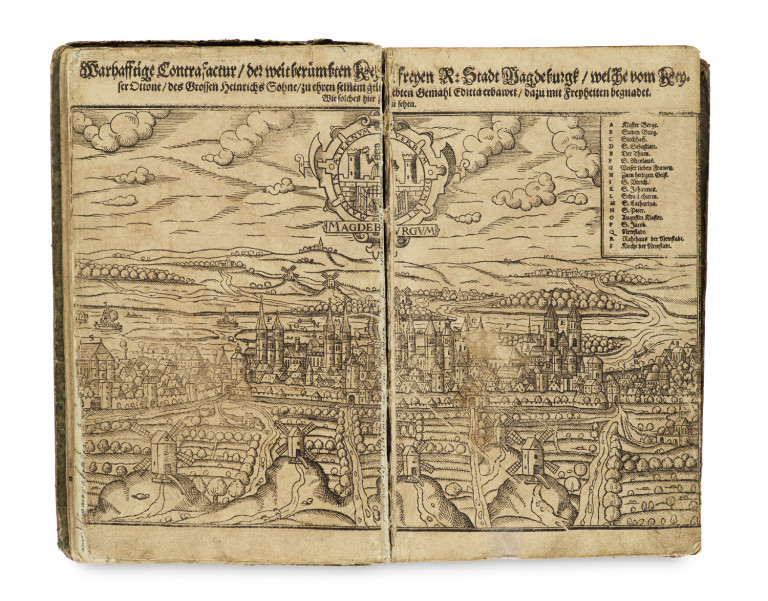 Warhafftige Contrafactur / der weitberümbten freyen R: Stadt Magdeburgk / welche vom Key-
ser Ottone / des Grossen Heinrichs Sohne / zu ehren seinem ebten Gemahl Editta erbawet / dazu mit Freyheiten begnadet.
Wie solches hier zu sehen.
MAGDEBURGUM
A Kloster Berge.
B Suden Burg.
D S. Sebastian.
E Der Thum.
F S. Nicolaus.
G Unser lieben Frawen.
H Zum heiligen Geist.
I S. Ulrich.
K S. Johannes.
M S. Catharina.
N S. Peter.
O Augustin Kloster.
P S. Jacob.
Q Newstadt.
R Rahthaus der Newstadt.
S Kirche der Newstadt.
S